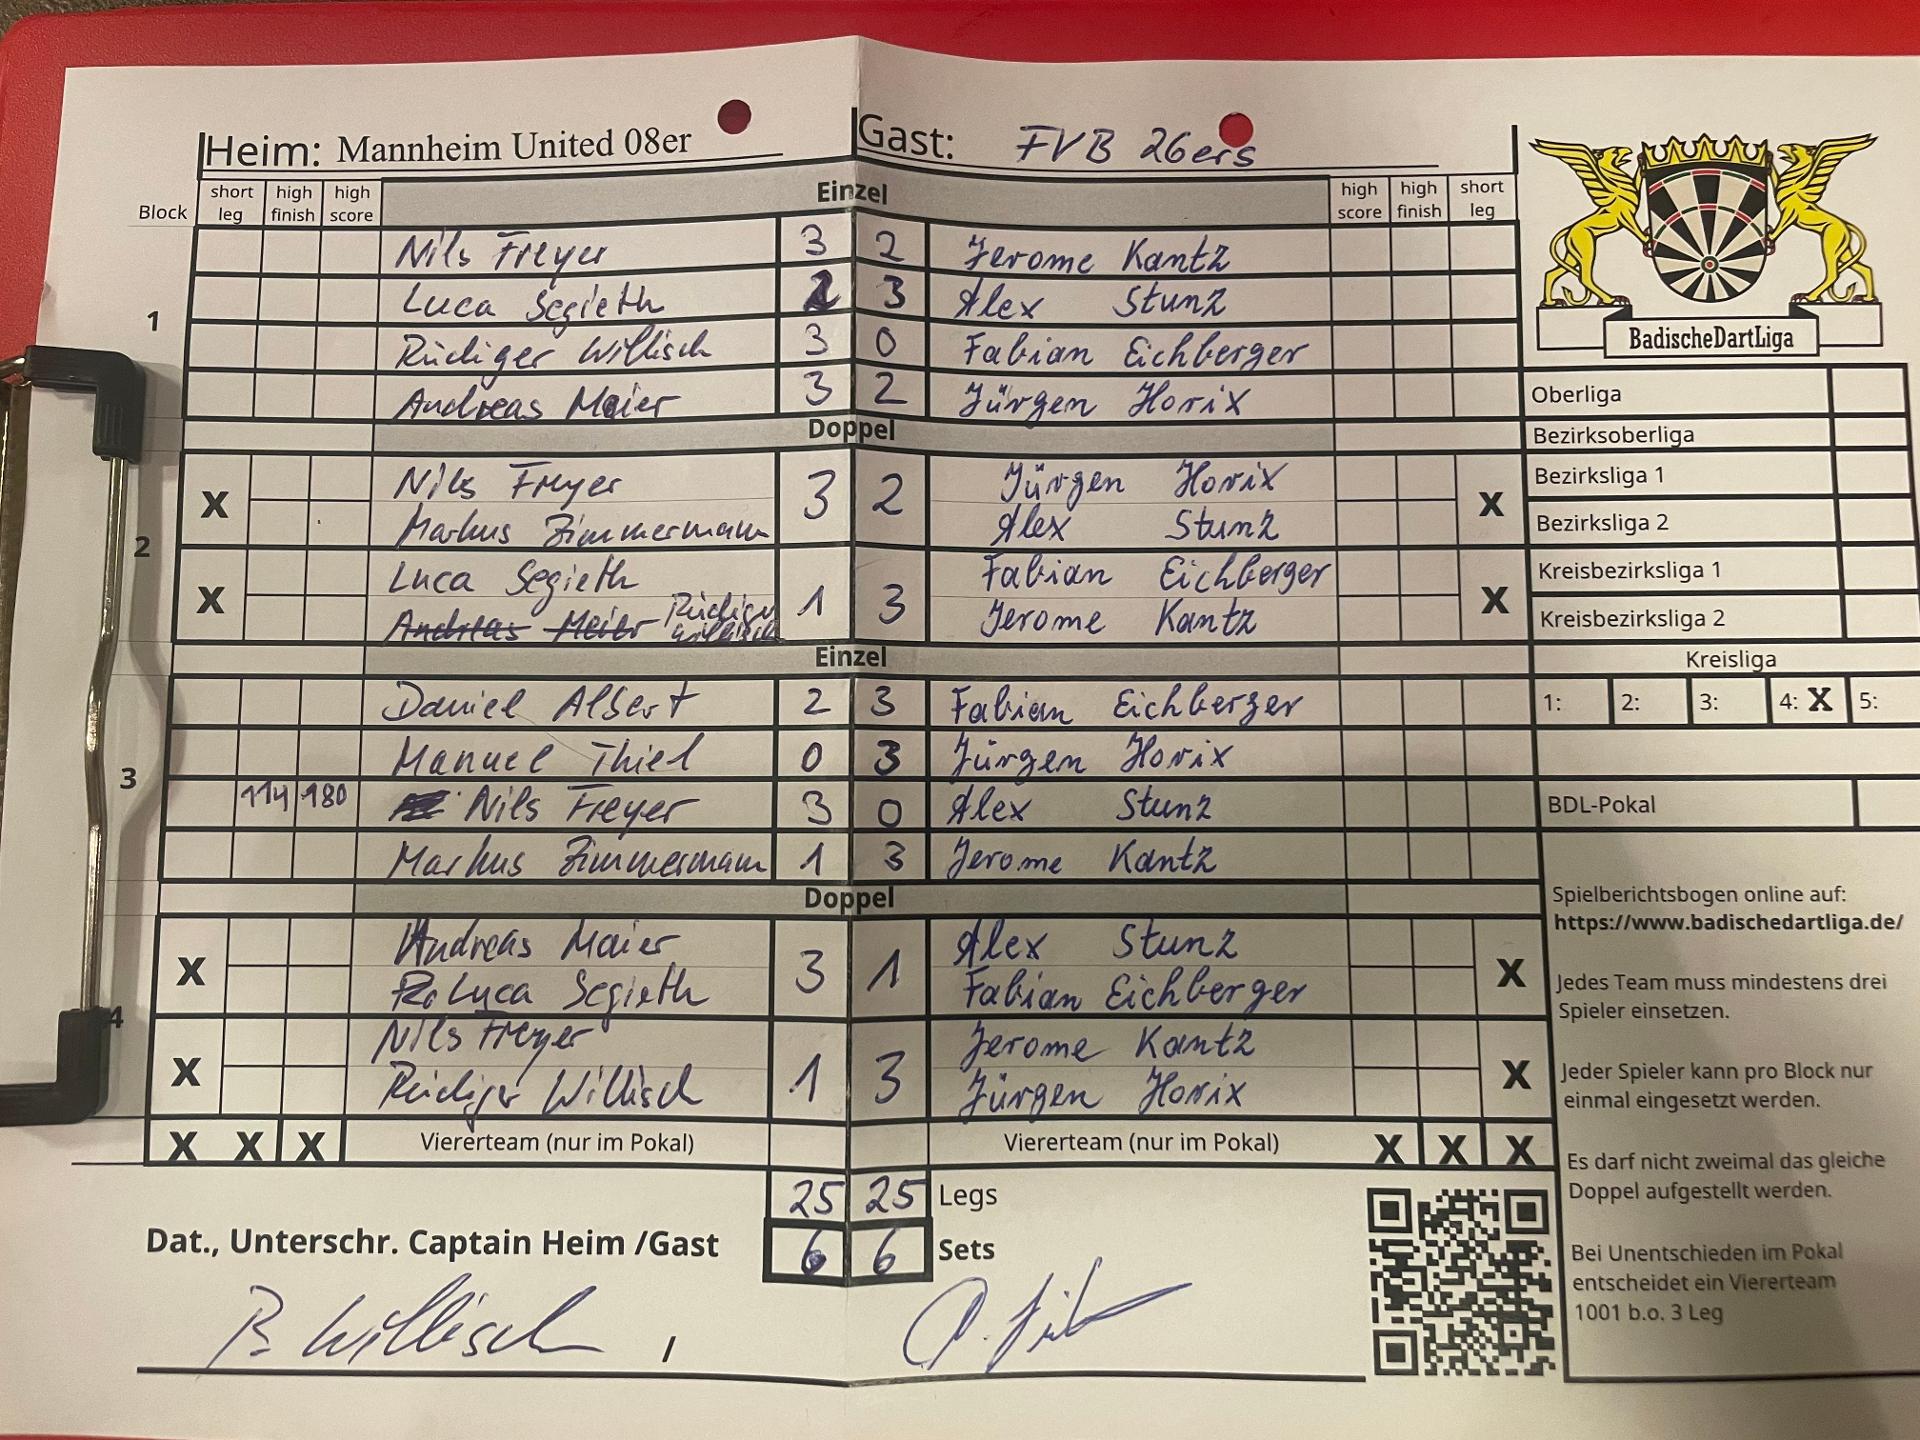 Heim: Mannheim United 08er Gast: FVB 26ers
Block short leg high finish high score Einzel high score high finish short leg
1
Nils Freyer 3 2 Jerome Kantz
Luca Segieth 2 3 Alex Stunz
Rüdiger Willisch 3 0 Fabian Eichberger
Andreas Maier 3 2 Jürgen Horix
Doppel
2
X Nils Freyer 3 2 Jürgen Horix X
Markus Zimmermann Alex Stunz
X Luca Segieth 1 3 Fabian Eichberger X
Andreas Meier Rüdiger Willisch Jerome Kantz
Einzel
3
Daniel Albert 2 3 Fabian Eichberger
Manuel Thiel 0 3 Jürgen Horix
114 180 Nils Freyer 3 0 Alex Stunz
Markus Zimmermann 1 3 Jerome Kantz
Doppel
4
X Andreas Maier 3 1 Alex Stunz X
Luca Segieth Fabian Eichberger
X Nils Freyer 1 3 Jerome Kantz X
Rüdiger Willisch Jürgen Horix
X X X Viererteam (nur im Pokal) Viererteam (nur im Pokal) X X X
25 25 Legs
Dat., Unterschr. Captain Heim /Gast 6 6 Sets
R. Willisch /
BadischeDartLiga
Oberliga
Bezirksoberliga
Bezirksliga 1
Bezirksliga 2
Kreisbezirksliga 1
Kreisbezirksliga 2
Kreisliga
1: 2: 3: 4: X 5:
BDL-Pokal
Spielberichtsbogen online auf:
https://www.badischedartliga.de/
Jedes Team muss mindestens drei
Spieler einsetzen.
Jeder Spieler kann pro Block nur
einmal eingesetzt werden.
Es darf nicht zweimal das gleiche
Doppel aufgestellt werden.
Bei Unentschieden im Pokal
entscheidet ein Viererteam
1001 b.o. 3 Leg